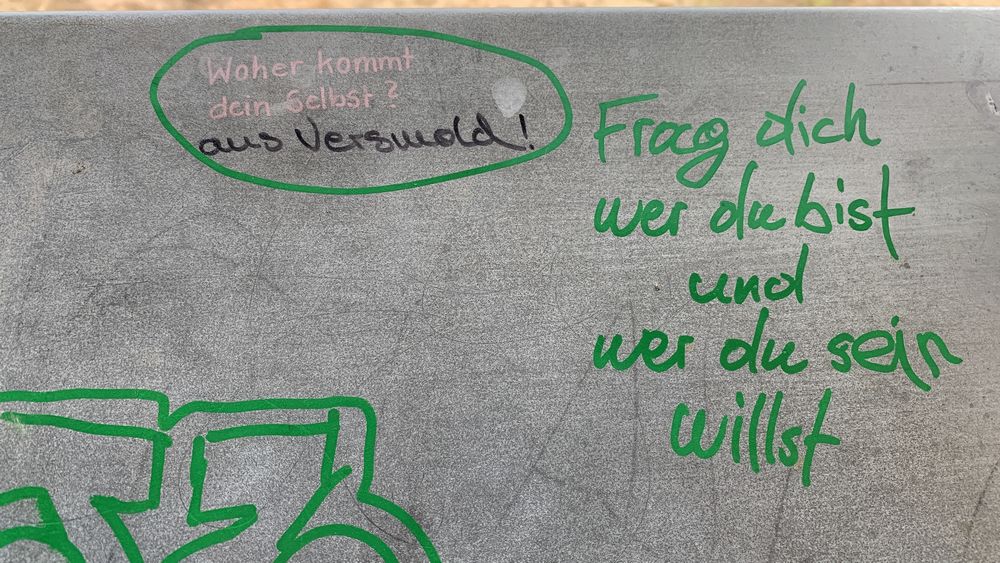 Woher kommt
dein Selbst?
aus Versmold!
Frag dich
wer du bist
und
wer du sein
willst